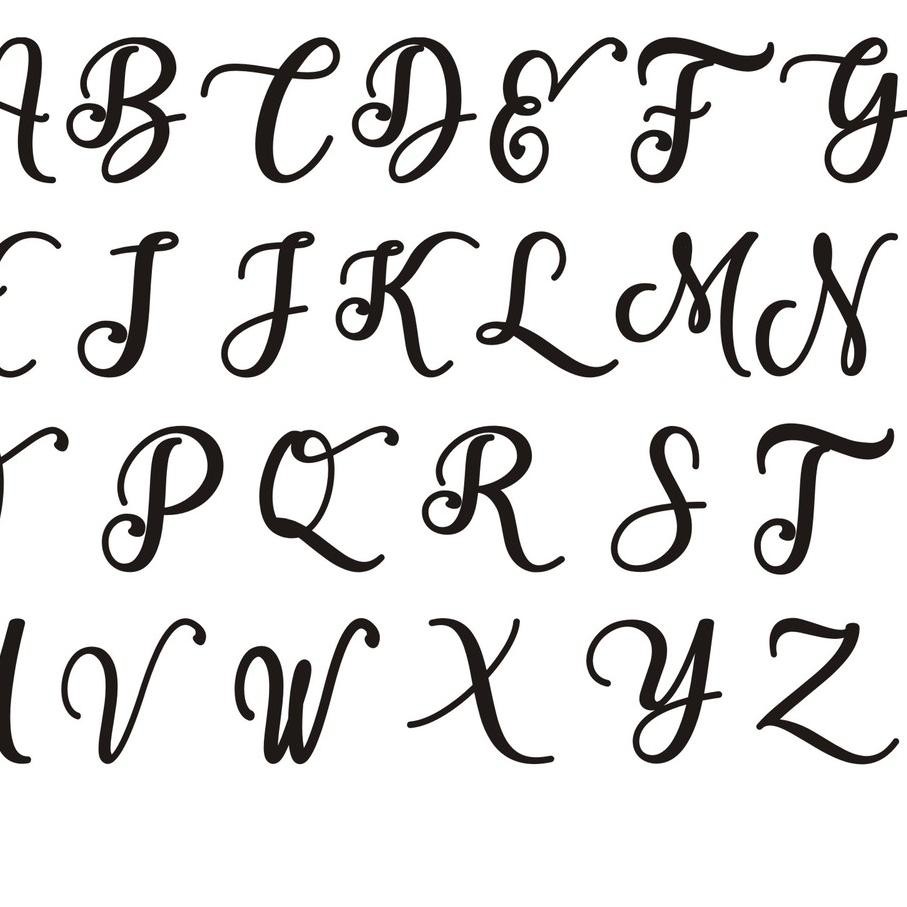 A B C D E F G
I J K L M N
P Q R S T
V W X Y Z